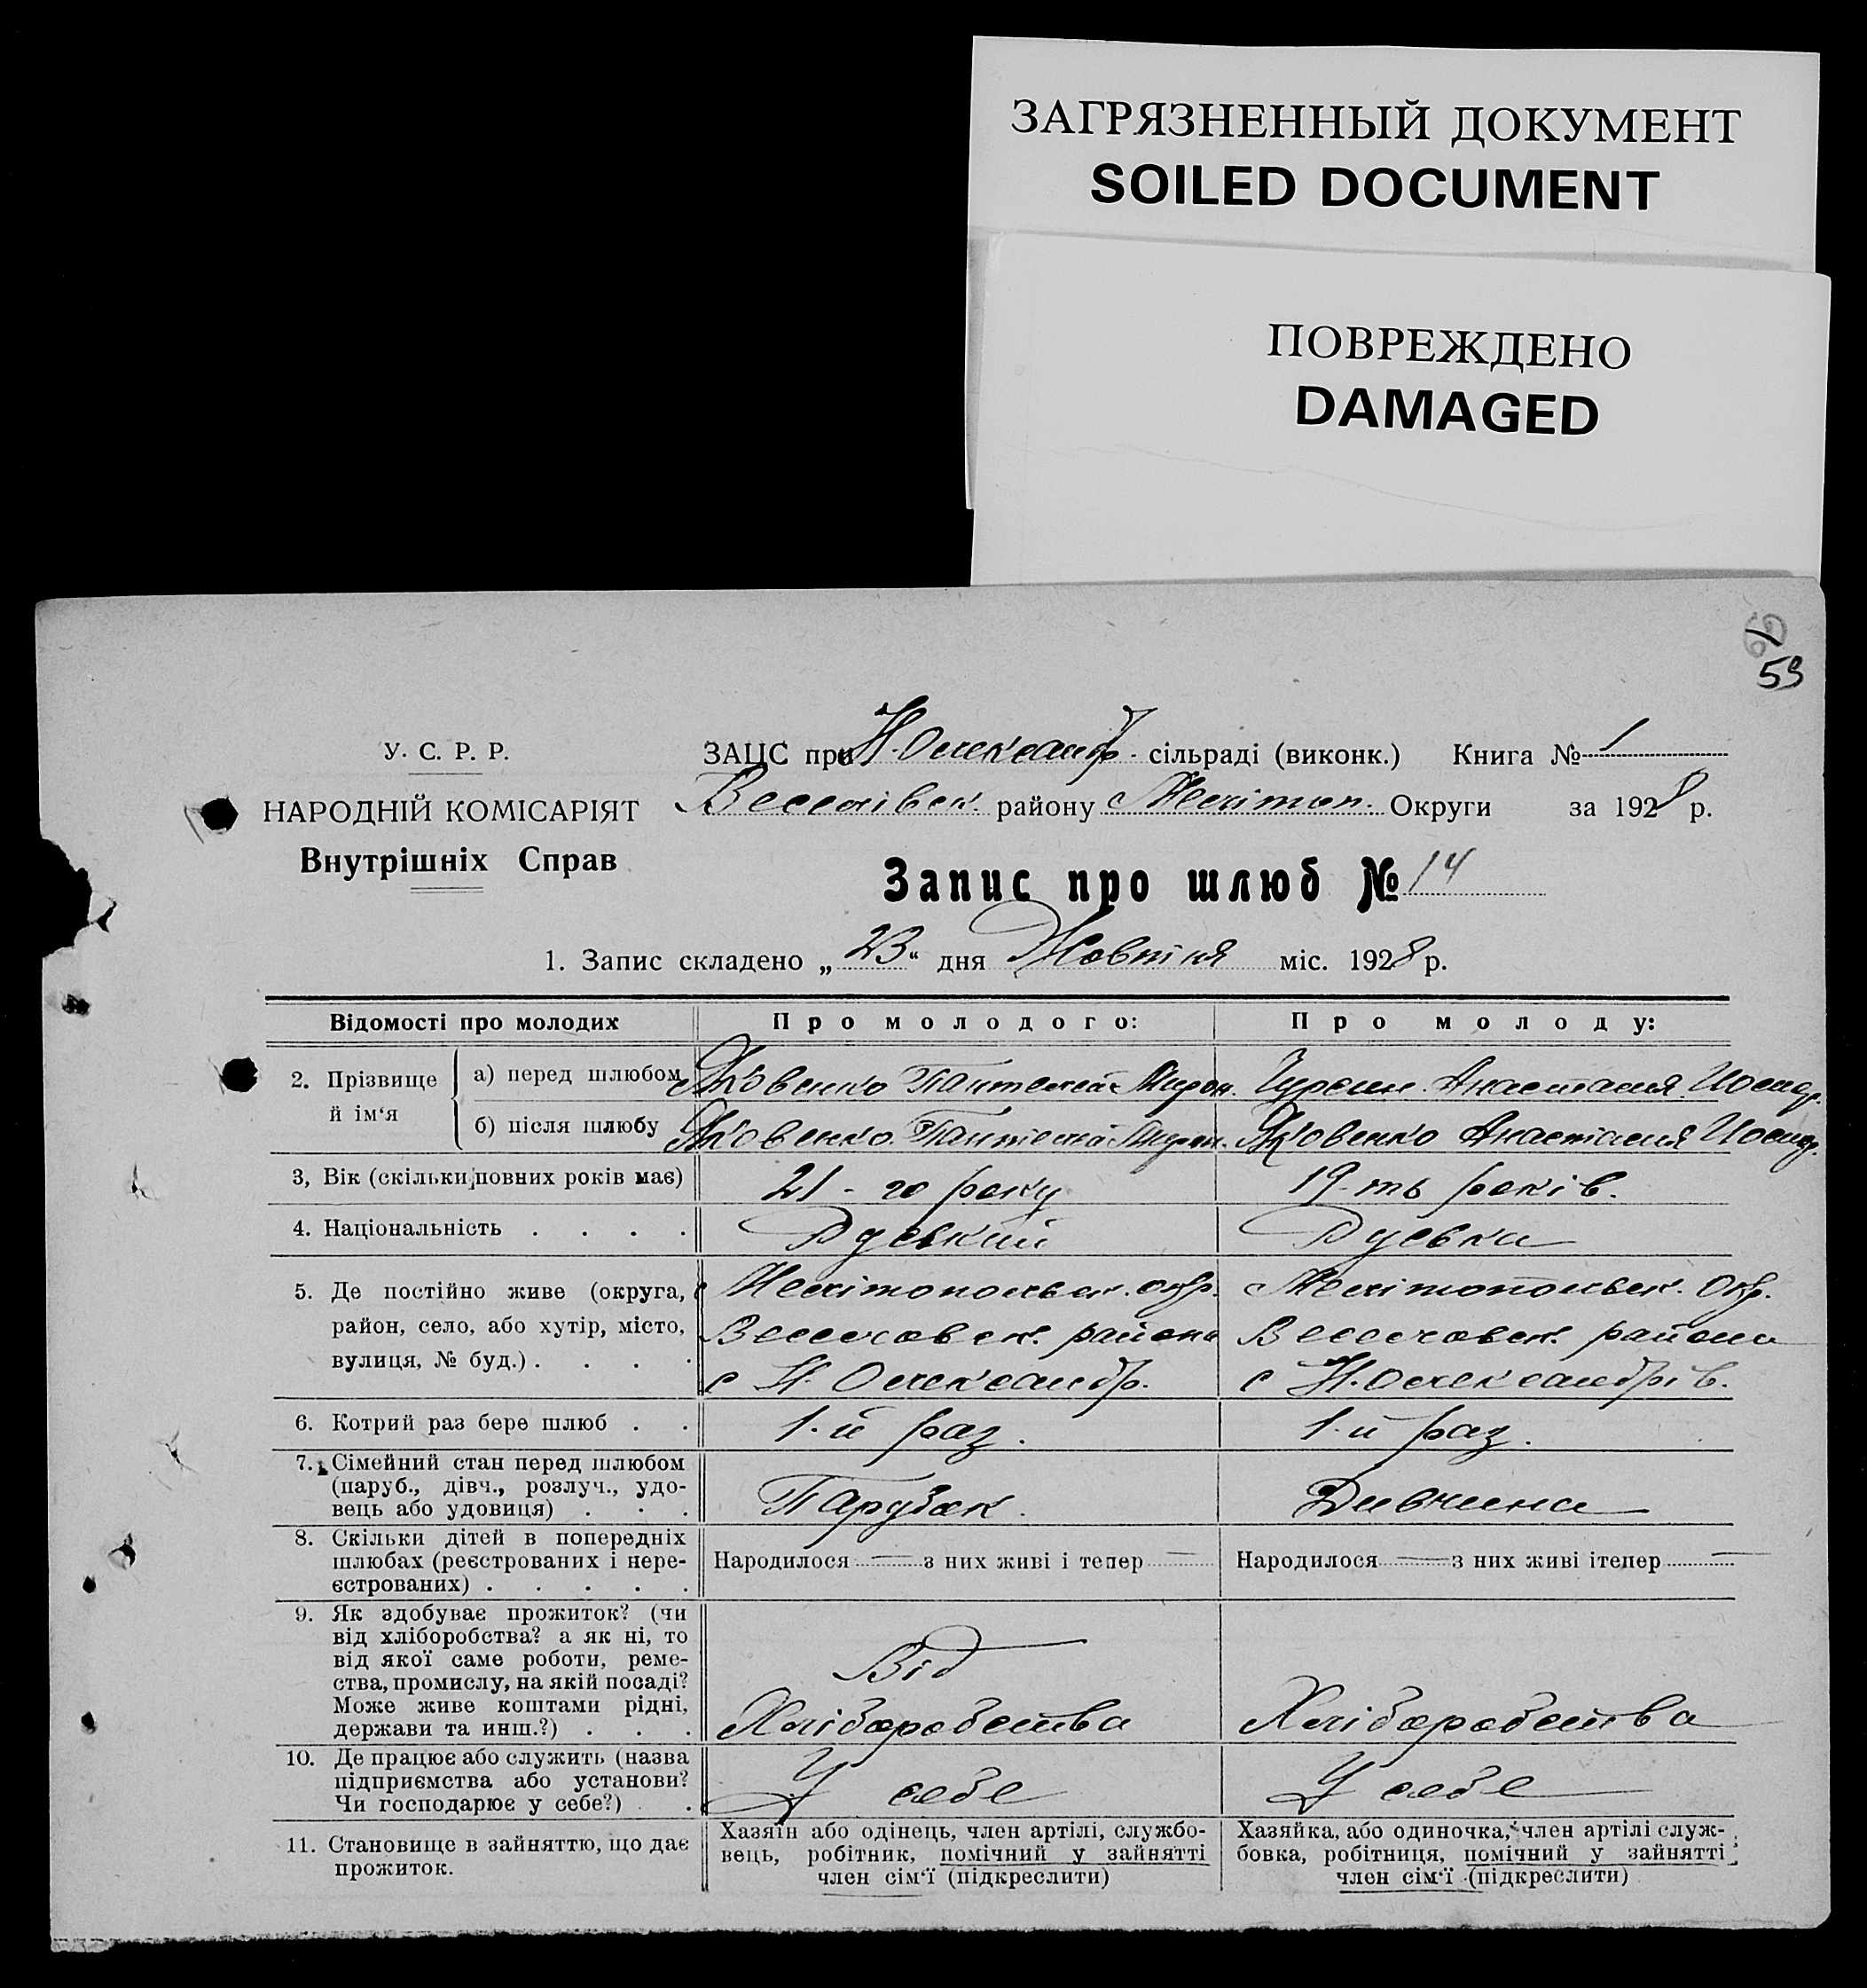 ЗАГРЯЗНЕННЫЙ ДОКУМЕНТ
SOILED DOCUMENT
ПОВРЕЖДЕНО
DAMAGED
59
У. С. Р. Р.
НАРОДНІЙ КОМІСАРІЯТ
Внутрішніх Справ
ЗАЦС при Н. Олександр. сільраді (виконк.) Книга № 1
Веселівск. району Мелітоп. Округи за 1928 р.
Запис про шлюб № 14
1. Запис складено „23“ дня Жовтня міс. 1928 р.
Відомості про молодих Про молодого: Про молоду:
2. Прізвище й ім‘я
а) перед шлюбом Яковенко Пантелей Мирон. Анастасия Иосиф.
б) після шлюбу Яковенко Пантелей Мирон. Яковенко Анастасия Иосиф.
3, Вік (скільки повних років має) 21-го року 19-ть років.
4. Національність . . . . Руський Руська
5. Де постійно живе (округа, Мелітопольск. окр. Мелітопольск. Окр.
район, село, або хутір, місто, Веселовск. района Веселовск. района
вулиця, № буд.) . . . . с Н. Олександр. с Н. Олександрів.
6. Котрий раз бере шлюб . . 1-й раз. 1-й раз.
7. Сімейний стан перед шлюбом
(паруб., дівч., розлуч., удо-
вець або удовиця) . . . Парубок. Дивчина
8. Скільки дітей в попередніх
шлюбах (реєстрованих і нере- Народилося — з них живі і тепер — Народилося — з них живі ітепер —
єстрованих) . . . . .
9. Як здобуває прожиток? (чи
від хліборобства? а як ні, то
від якої саме роботи, реме- Від
ства, промислу, на якій посаді?
Може живе коштами рідні, Хліборобства Хліборобства
держави та инш.?) . . .
10. Де працює або служить (назва
підприємства або установи? У себе У себе
Чи господарює у себе?) . .
11. Становище в зайняттю, що дає
прожиток.
Хазяїн або одінець, член артілі, службо-
вець, робітник, помічний у зайнятті
член сім‘ї (підкреслити)
Хазяйка, або одиночка, член артілі служ-
бовка, робітниця, помічний у зайнятті
член сім‘ї (підкреслити)